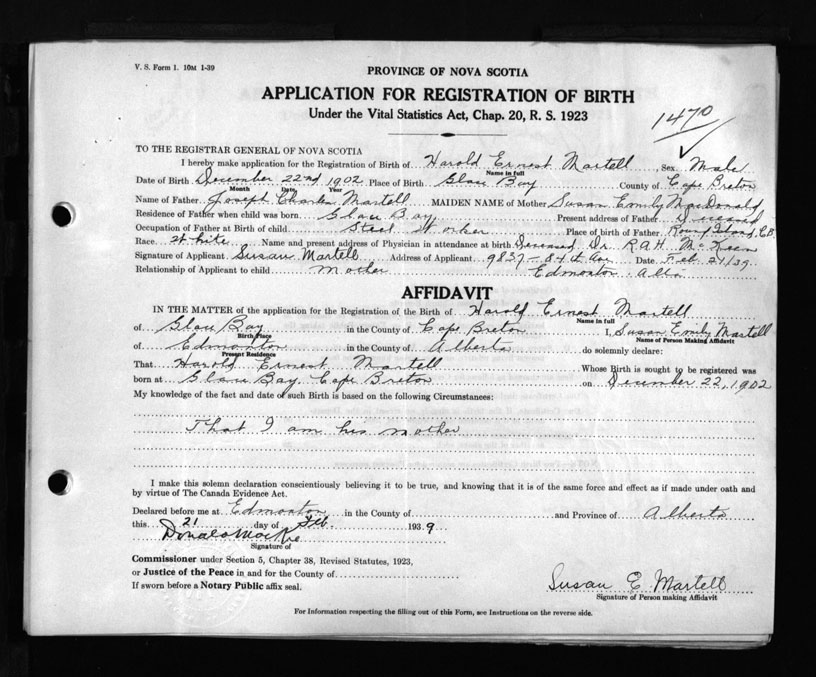 V. S. Form 1. 10M 1-39
PROVINCE OF NOVA SCOTIA
APPLICATION FOR REGISTRATION OF BIRTH
Under the Vital Statistics Act, Chap. 20, R. S. 1923
1470
TO THE REGISTRAR GENERAL OF NOVA SCOTIA
I hereby make application for the Registration of Birth of Harold Ernest Martell Sex Male
Name in full
Date of Birth December 22nd 1902 Place of Birth Glace Bay County of Cape Breton
Month Date Year
Name of Father Joseph Charles Martell MAIDEN NAME of Mother Susan Emily MacDonald
Residence of Father when child was born Glace Bay Present address of Father Deceased
Occupation of Father at Birth of child Steel Worker Place of birth of Father Round Island C.B.
Race White Name and present address of Physician in attendance at birth Deceased Dr. R.A.H. McKeen
Signature of Applicant Susan Martell Address of Applicant 9837 - 84th Ave Date Feb 21/39.
Relationship of Applicant to child Mother Edmonton Alta
AFFIDAVIT
IN THE MATTER of the application for the Registration of the Birth of Harold Ernest Martell
Name in full
of Glace Bay in the County of Cape Breton I, Susan Emily Martell
Birth Place Name of Person Making Affidavit
of Edmonton in the County of Alberta do solemnly declare:
Present Residence
That Harold Ernest Martell Whose Birth is sought to be registered was
born at Glace Bay Cape Breton on December 22, 1902
My knowledge of the fact and date of such Birth is based on the following Circumstances:
That I am his mother
I make this solemn declaration conscientiously believing it to be true, and knowing that it is of the same force and effect as if made under oath and
by virtue of The Canada Evidence Act.
Declared before me at Edmonton in the County of and Province of Alberta
this 21 day of Feb. 1939
Signature of
Commissioner under Section 5, Chapter 38, Revised Statutes, 1923,
or Justice of the Peace in and for the County of
If sworn before a Notary Public affix seal.
Susan E. Martell
Signature of Person making Affidavit
For Information respecting the filling out of this Form, see Instructions on the reverse side.